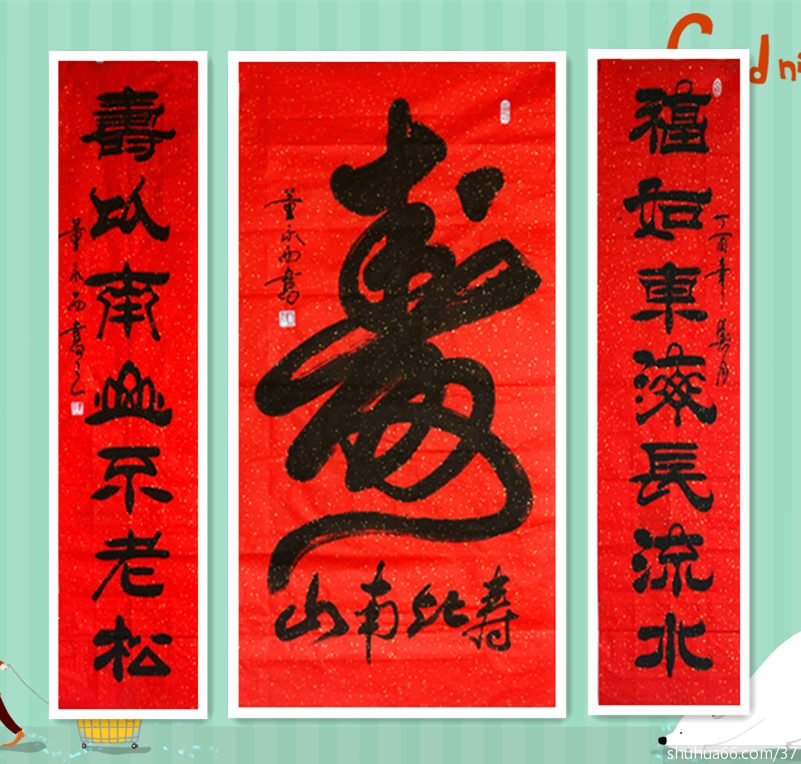 福如東海長流水
丁酉年夏月
壽
寿比南山
董永西書
壽比南山不老松
董永西書之
shuhua66.com/37